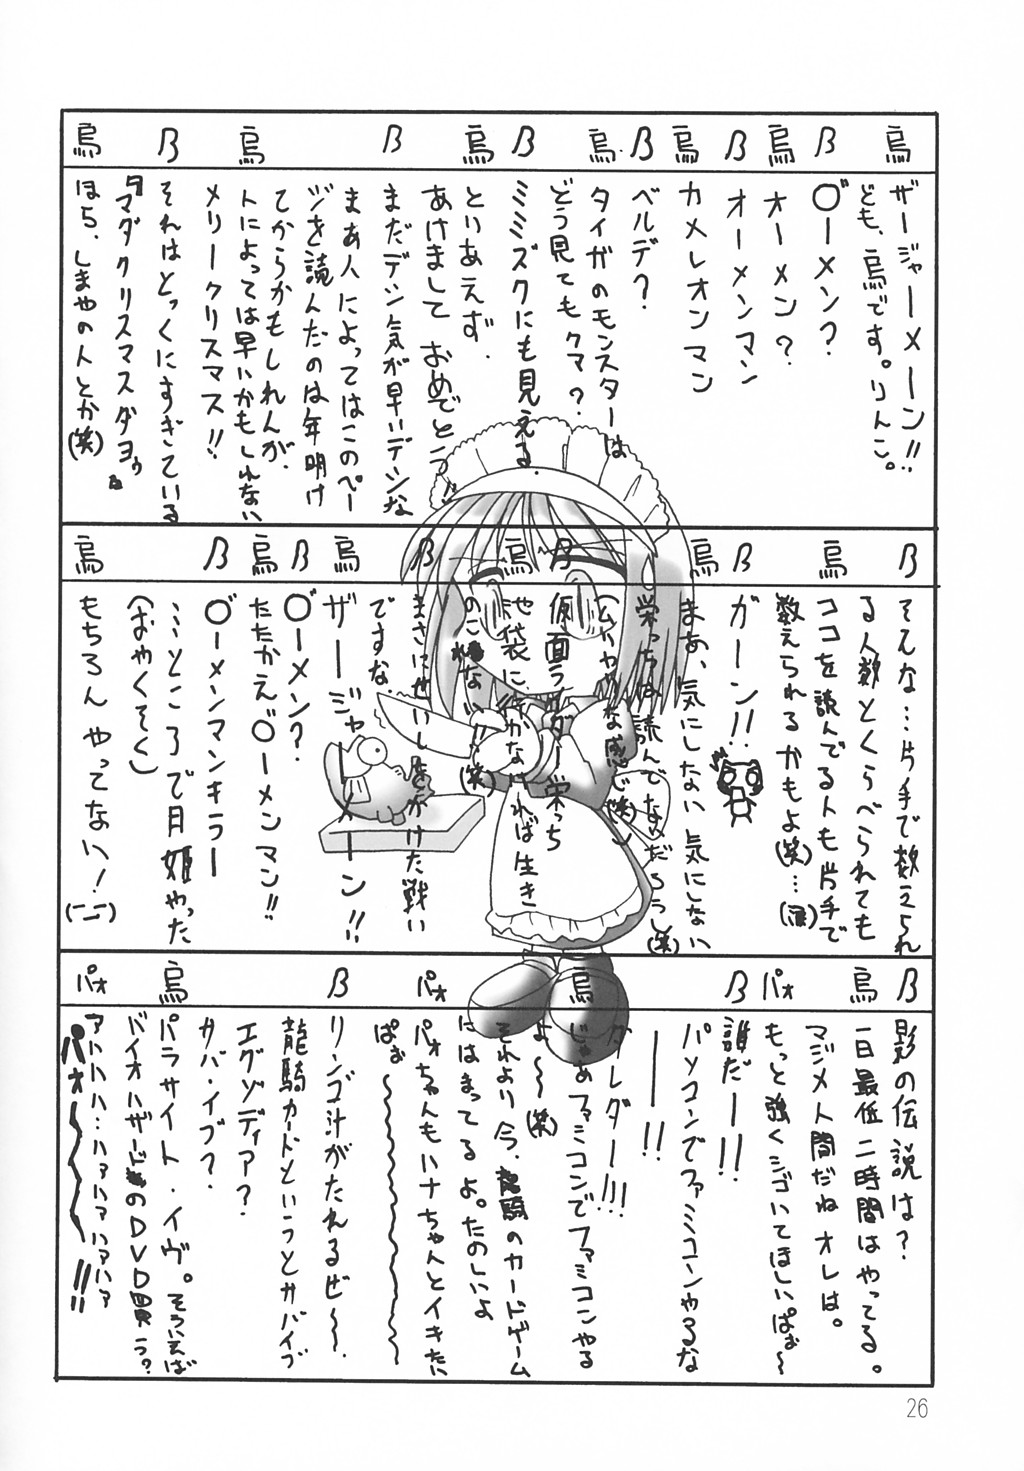 烏
ザージャーメーン!!
ども、烏です。りんこ。
β
〇゛ーメン?
烏
オーメン?
β
オーメンマン
烏
カメレオンマン
β
ベルデ?
烏
タイガのモンスターは
どう見てもクマ?
β
ミミズクにも見える
烏
とりあえず、
あけまして おめでとう!!
β
まだデンシ気が早いデンシな
烏
まあ人によってはこのペー
ジを読んだのは年明け
てからかもしれんが、
トによっては早いかもしれない
メリークリスマス!!
β
それはとっくにすぎている
烏
『マダクリスマスダヨゥ』
ほら、しまやの人とか(笑)
β
そんな…片手で数えられ
る人数とくらべられても
烏
ココを読んでるトも片手で
数えられるかもよ(笑)…(涙)
β
ガーン!!
烏
まあ、気にしない気にしない
栄っちは読んでなみだろうし(笑)
(ムハァな感で(笑))
β
仮面ライダー栄っち
烏
池袋に行かなければ生き
のこれない(笑)
β
まさにせいしをかけた戦い
ですな
烏
ザージャーメーン!!
β
〇゛ーメン?
烏
たたかえ〇゛ーメンマン!!
β
〇゛ーメンマンキラー
…ところで月姫やった
(おやくそく)
烏
もちろん やってない!(ーー)
β
影の伝説は?
烏
一日最低二時間はやってる。
マジメ人間だねオレは。
パォ
もっと強くシゴいてほしいぱぉ~
β
誰だー!!
パソコンでファミコーンやるな
ーー!!
烏
ダレダー!!!
じゃあファミコンでファミコンやる
よ~~(笑)
それより今、龍騎のカードゲーム
にはまってるよ。たのしいよ
パォ
パォちゃんもハナちゃんとイキたい
ぱぉ~~~~
β
リンゴ汁がたれるぜ~~.
龍騎カードというとサバイブ
エグゾディア?
サバ・イブ?
烏
パラサイト・イヴ。そういえば
バイオハザードのDVD買う?
パォ
アハハハ…ハアハアハアハア
パォーーー!!
26